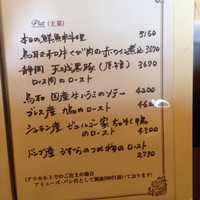 Plat（主菜）
本日の鮮魚料理 3160
鳥取又和牛 くび肉の赤ワイン煮込 3670
静岡 天城黒豚（原種） 3670
ロース肉のロースト
鳥取 国産牛ハラミのソテー 4200
ブレス産 鳩のロースト 4620
シャラン産 ビュルゴー家 ちっそく鴨
のロースト 4300
ドンブ産 うずらのつめ物のロースト
2730
（アラカルトでのご注文の場合
アミューズ・パン代として別途500円頂いております）